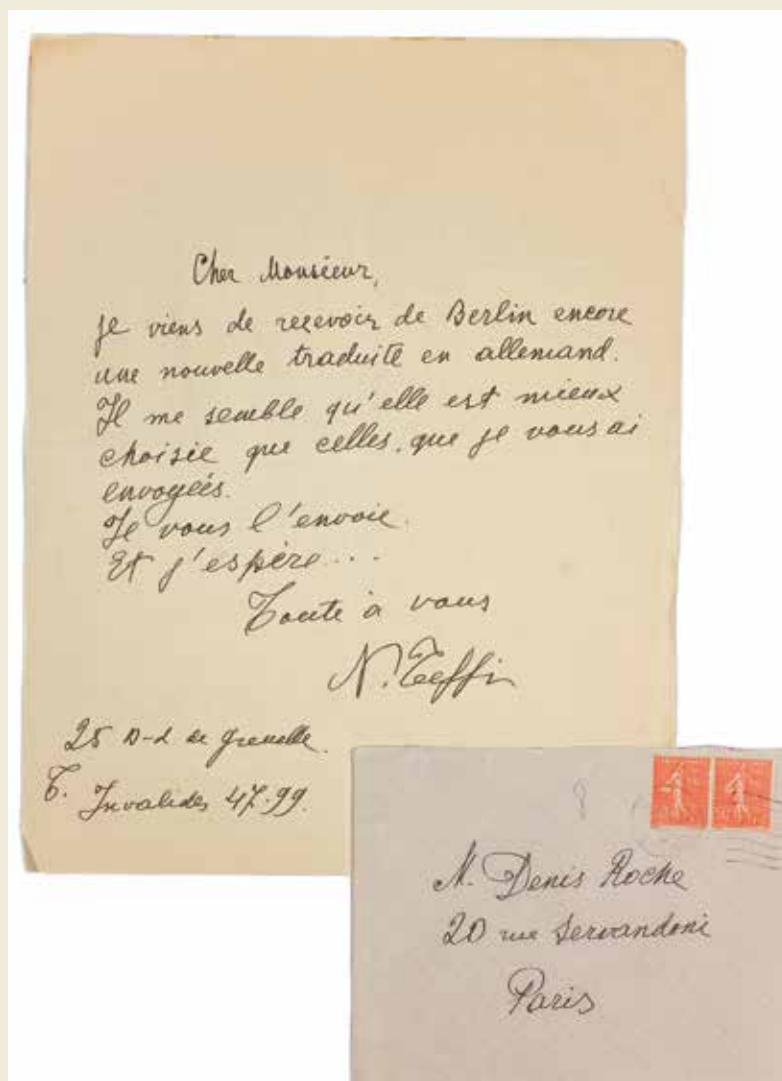 Cher Monsieur,
je viens de recevoir de Berlin encore
une nouvelle traduite en allemand.
Il me semble qu'elle est mieux
choisie que celles, que je vous ai
envoyées.
Je vous l'envoie.
Et j'espère...
Toute à vous
N. Teffi
25 B-d de Grenelle.
T. Invalides 47.99.
M. Denis Roche
20 rue Servandoni
Paris